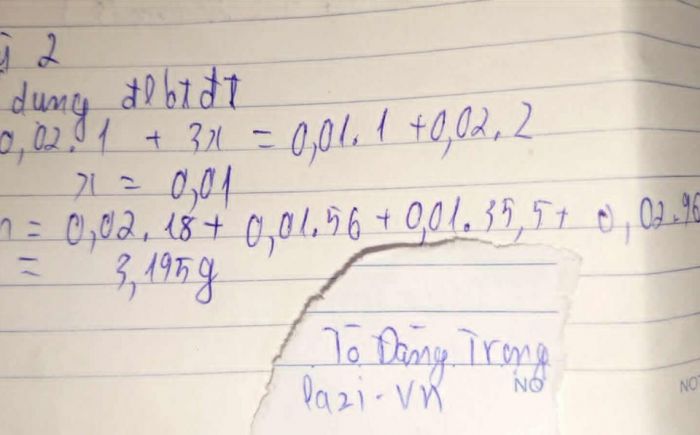 2
dung đlbtđt
0,02.1 + 3x = 0,01.1 + 0,02.2
x = 0,01
= 0,02.18 + 0,01.56 + 0,01.35,5 + 0,02.96
= 3,195g
Tô Đăng Trọng
Lazi-vn
NO
NO